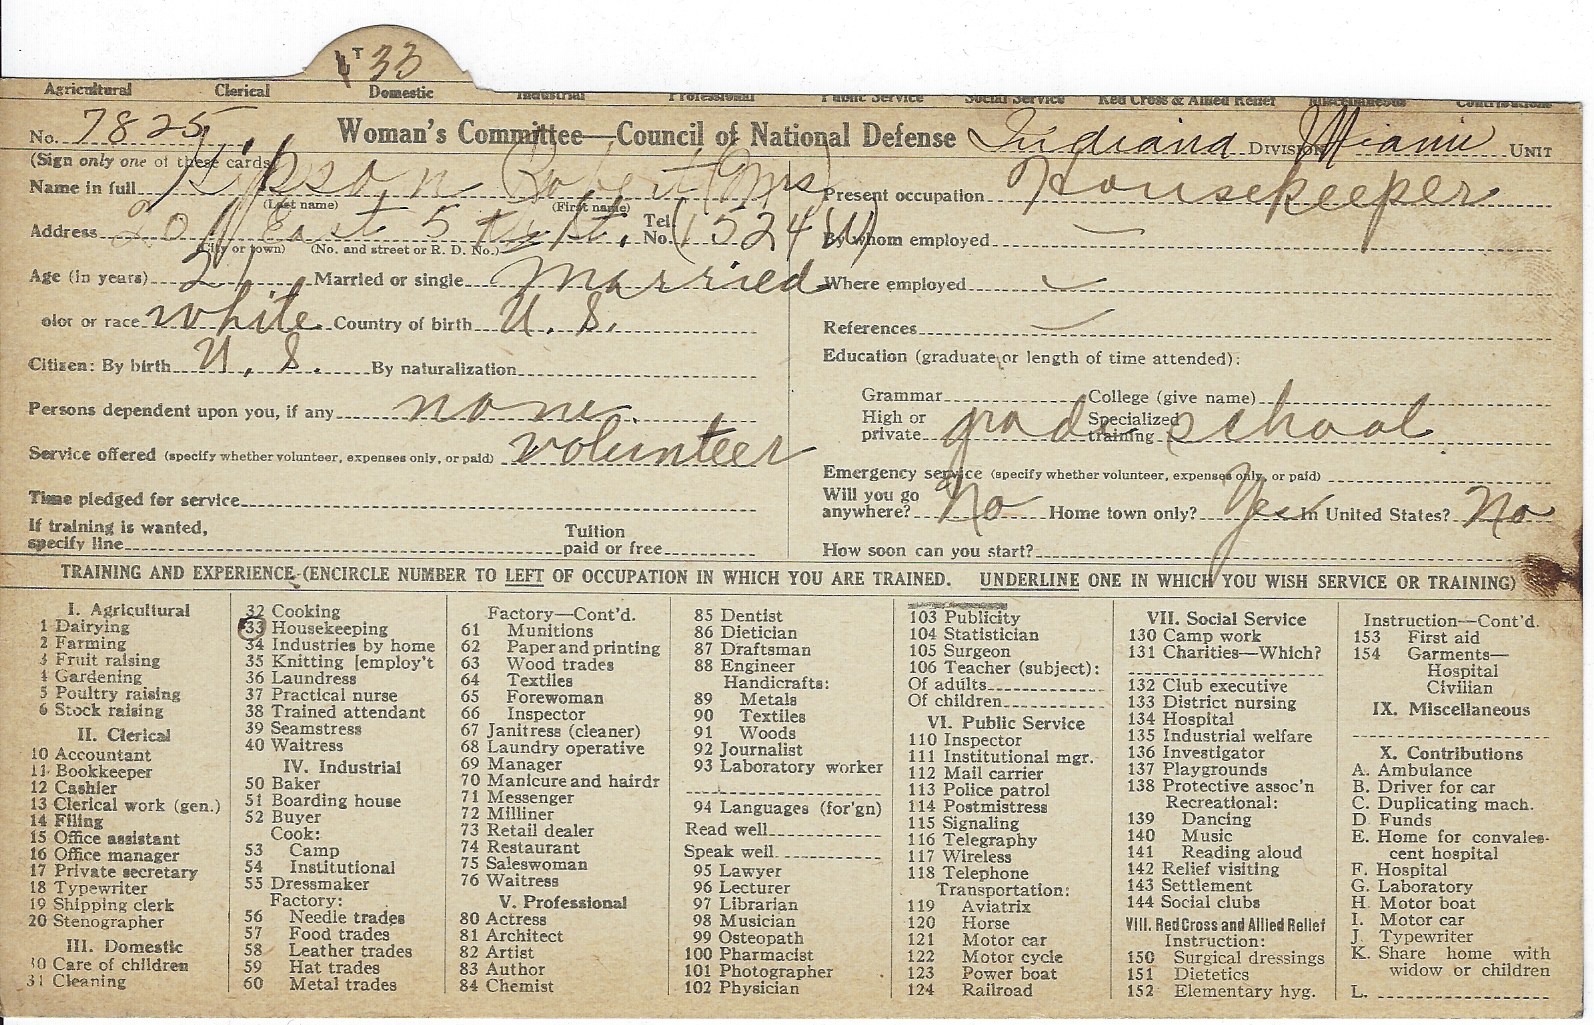 T 33
Agricultural Clerical Domestic Industrial Professional Public Service Social Service Red Cross & Allied Relief Miscellaneous Contributions
No. 7825 Woman's Committee—Council of National Defense Indiana DIVISION Miami UNIT
(Sign only one of these cards)
Name in full Kipson Robert (Mrs)
(Last name) (First name)
Address 20 East 5th St. Tel. No. (1524 W)
(City or town) (No. and street or R. D. No.)
Age (in years) 21 Married or single married
olor or race white Country of birth U. S.
Citizen: By birth U. S. By naturalization
Persons dependent upon you, if any none.
Service offered (specify whether volunteer, expenses only, or paid) volunteer
Time pledged for service
If training is wanted, specify line Tuition paid or free
Present occupation Housekeeper
By whom employed
Where employed
References
Education (graduate or length of time attended):
Grammar College (give name)
High or private grade school Specialized training
Emergency service (specify whether volunteer, expenses only, or paid)
Will you go anywhere? No Home town only? Yes In United States? No
How soon can you start?
TRAINING AND EXPERIENCE (ENCIRCLE NUMBER TO LEFT OF OCCUPATION IN WHICH YOU ARE TRAINED. UNDERLINE ONE IN WHICH YOU WISH SERVICE OR TRAINING)
I. Agricultural
1 Dairying
2 Farming
3 Fruit raising
4 Gardening
5 Poultry raising
6 Stock raising
II. Clerical
10 Accountant
11 Bookkeeper
12 Cashier
13 Clerical work (gen.)
14 Filing
15 Office assistant
16 Office manager
17 Private secretary
18 Typewriter
19 Shipping clerk
20 Stenographer
III. Domestic
30 Care of children
31 Cleaning
32 Cooking
33 Housekeeping
34 Industries by home
35 Knitting [employ't
36 Laundress
37 Practical nurse
38 Trained attendant
39 Seamstress
40 Waitress
IV. Industrial
50 Baker
51 Boarding house
52 Buyer
Cook:
53 Camp
54 Institutional
55 Dressmaker
Factory:
56 Needle trades
57 Food trades
58 Leather trades
59 Hat trades
60 Metal trades
Factory—Cont'd.
61 Munitions
62 Paper and printing
63 Wood trades
64 Textiles
65 Forewoman
66 Inspector
67 Janitress (cleaner)
68 Laundry operative
69 Manager
70 Manicure and hairdr
71 Messenger
72 Milliner
73 Retail dealer
74 Restaurant
75 Saleswoman
76 Waitress
V. Professional
80 Actress
81 Architect
82 Artist
83 Author
84 Chemist
85 Dentist
86 Dietician
87 Draftsman
88 Engineer
Handicrafts:
89 Metals
90 Textiles
91 Woods
92 Journalist
93 Laboratory worker
94 Languages (for'gn)
Read well
Speak well
95 Lawyer
96 Lecturer
97 Librarian
98 Musician
99 Osteopath
100 Pharmacist
101 Photographer
102 Physician
103 Publicity
104 Statistician
105 Surgeon
106 Teacher (subject):
Of adults
Of children
VI. Public Service
110 Inspector
111 Institutional mgr.
112 Mail carrier
113 Police patrol
114 Postmistress
115 Signaling
116 Telegraphy
117 Wireless
118 Telephone
Transportation:
119 Aviatrix
120 Horse
121 Motor car
122 Motor cycle
123 Power boat
124 Railroad
VII. Social Service
130 Camp work
131 Charities—Which?
132 Club executive
133 District nursing
134 Hospital
135 Industrial welfare
136 Investigator
137 Playgrounds
138 Protective assoc'n
Recreational:
139 Dancing
140 Music
141 Reading aloud
142 Relief visiting
143 Settlement
144 Social clubs
VIII. Red Cross and Allied Relief
Instruction:
150 Surgical dressings
151 Dietetics
152 Elementary hyg.
Instruction—Cont'd.
153 First aid
154 Garments—
Hospital
Civilian
IX. Miscellaneous
X. Contributions
A. Ambulance
B. Driver for car
C. Duplicating mach.
D. Funds
E. Home for convales-
cent hospital
F. Hospital
G. Laboratory
H. Motor boat
I. Motor car
J. Typewriter
K. Share home with
widow or children
L.